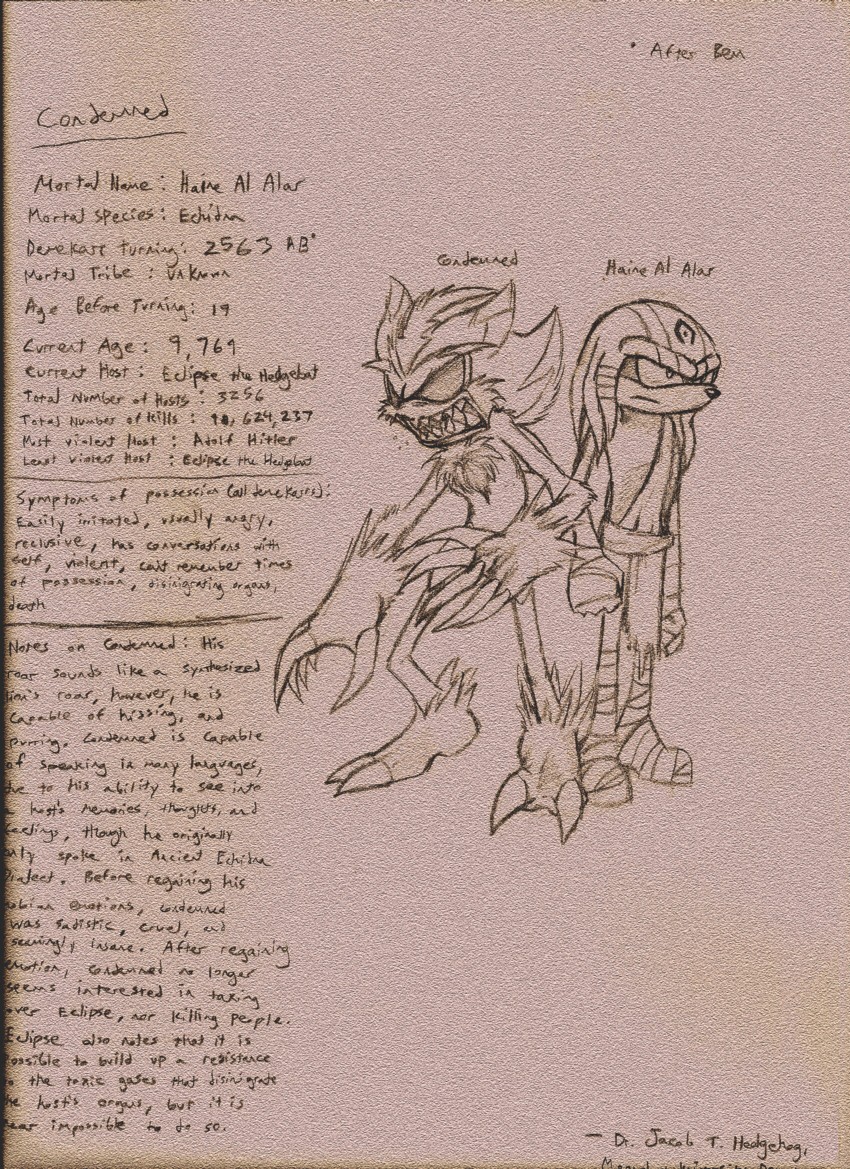 * After Ben
Condemned
Mortal Name: Haine Al Alar
Mortal species: Echidna
Derekarr turning: 2563 AB*
Mortal Tribe: Unknown
Age Before Turning: 19
Current Age: 9,769
Current Host: Eclipse the Hedgebat
Total Number of Hosts: 3256
Total Number of kills: 10,624,237
Most violent Host: Adolf Hitler
Least violent Host: Eclipse the Hedgebat
Condemned
Haine Al Alar
Symptoms of possession (all
Easily irritated, usually angry,
reclusive, has conversations with
self, violent, can't remember times
of possession, disinigrating organs,
death
Notes on Condemned: His
roar sounds like a synthesized
lion's roar, however, he is
capable of hissing, and
purring. Condemned is capable
of speaking in many languages,
to his ability to see into
host's memories, thoughts, and
feelings, though he originally
only spoke in Ancient Echidna
Dialect. Before regaining his
emotions, condemned
was sadistic, cruel, and
seemingly insane. After regaining
emotion, condemned no longer
seems interested in taking
over Eclipse, nor killing people.
Eclipse also notes that it is
possible to build up a resistance
the toxic gases that disinigrate
the host's organs, but it is
near impossible to do so.
— Dr. Jacob T. Hedgehog,